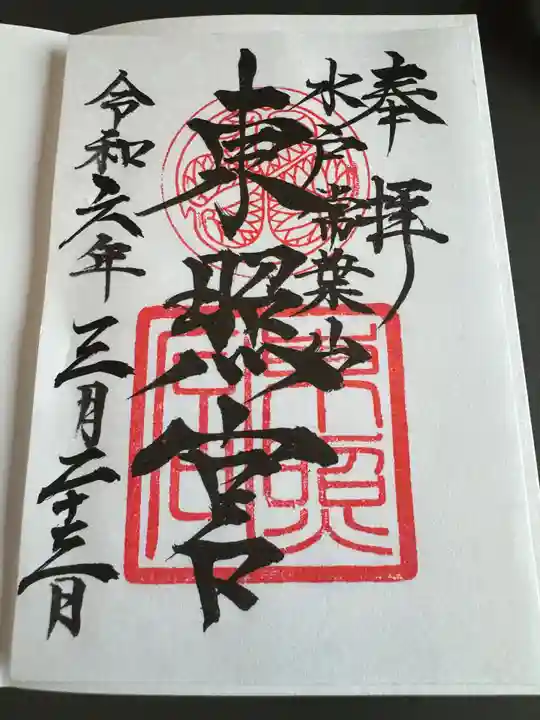 奉拝
水戸常葉山
東照宮
令和六年三月二十三日
東照